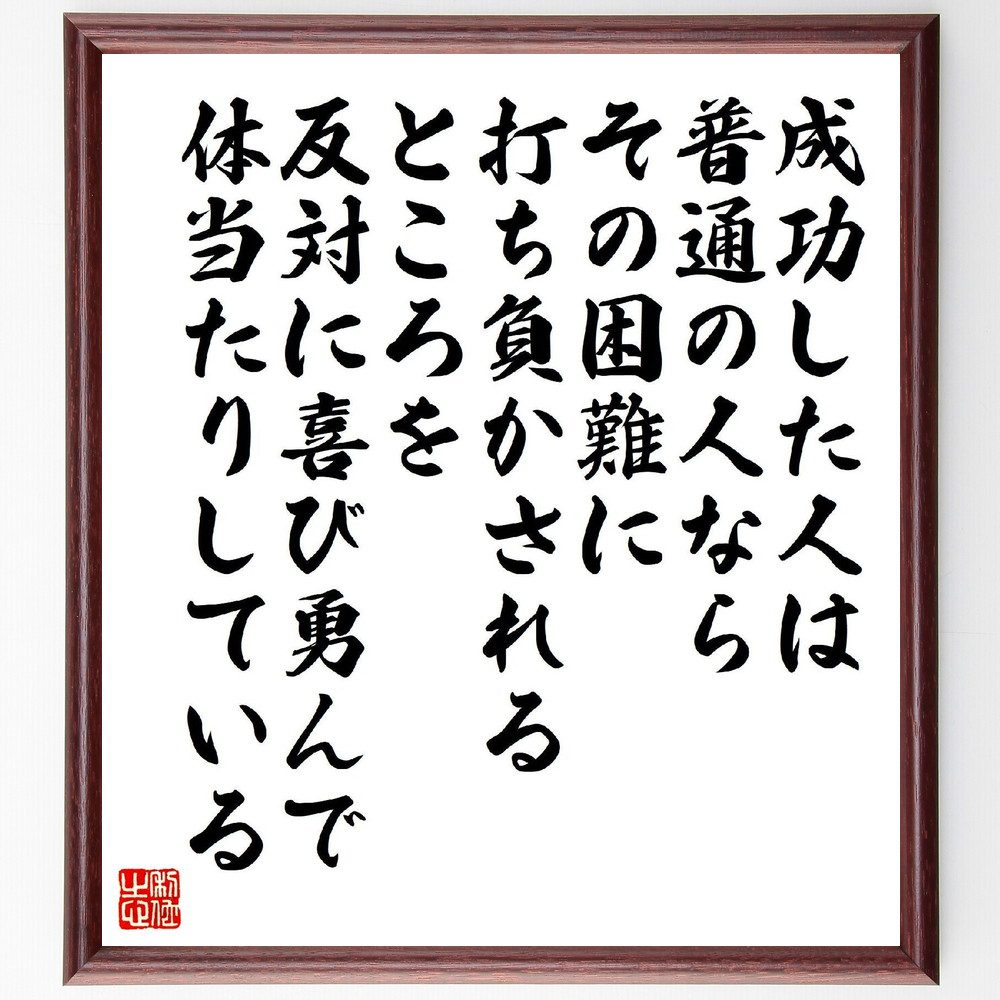 成功した人は
普通の人なら
その困難に
打ち負かされる
ところを
反対に喜び勇んで
体当たりしている